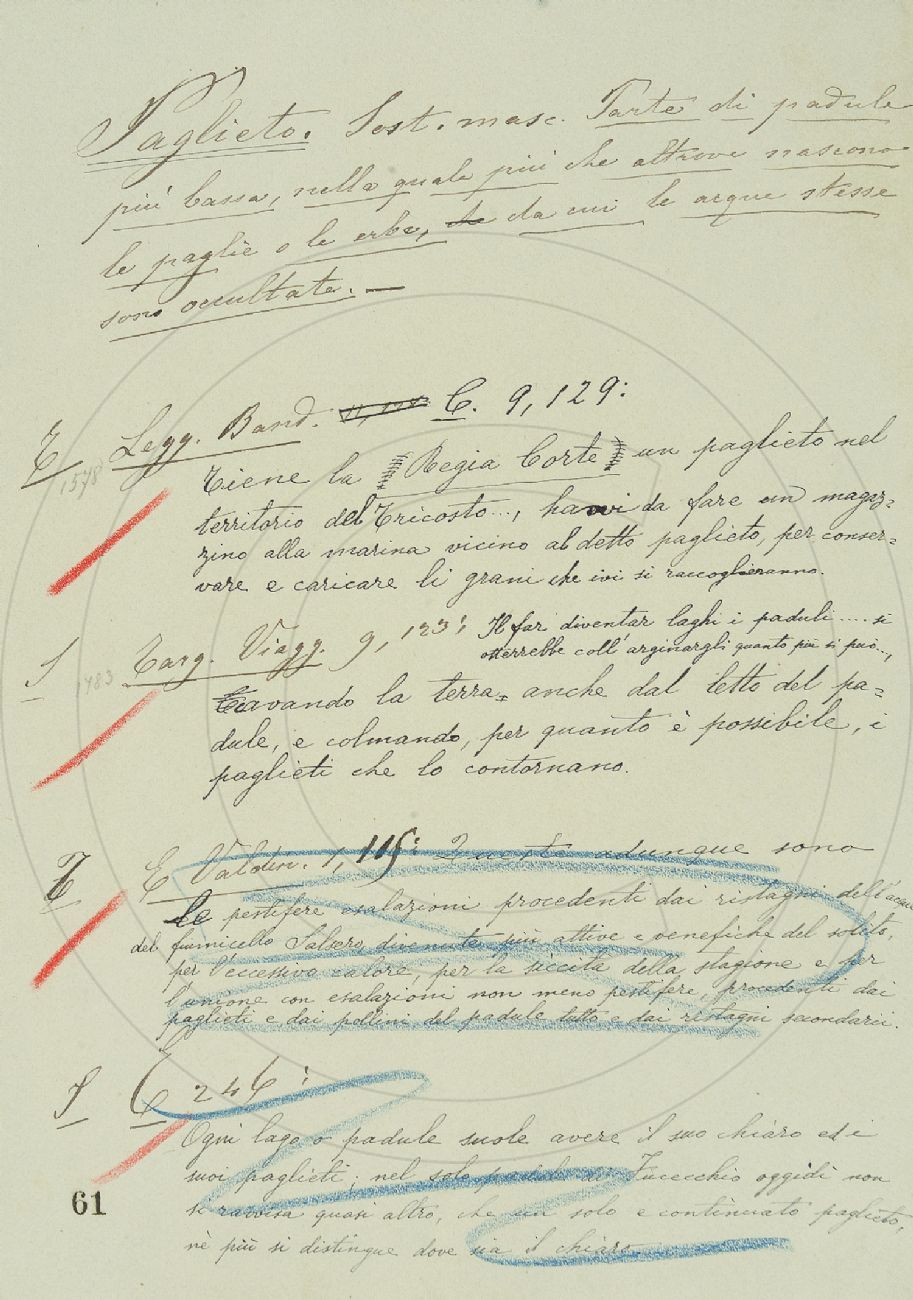 Paglieto. Sost. masc. Parte di padule
più bassa, nella quale più che altrove nascono
le paglie o le erbe, da cui le acque stesse
sono occultate. —
Legg. Band. C. 9, 129:
T
1578
Tiene la Regia Corte un paglieto nel
territorio del Tricosto..., havvi da fare un magaz=
zino alla marina vicino al detto paglieto, per conser=
vare e caricare li grani che ivi si raccoglieranno.
S
1783
Targ. Viagg. 9, 123: Il far diventar laghi i paduli .... si
otterrebbe coll'arginargli quanto più si può..,
cavando la terra anche dal letto del pa=
dule, e colmando, per quanto è possibile, i
paglieti che lo contornano.
T
E Valdin. 1, 115: Queste adunque sono
le pestifere esalazioni procedenti dai ristagni dell'acque
del fiumicello Salsero, divenute più attive e venefiche del solito,
per l'eccessivo calore, per la siccità della stagione e per
l'unione con esalazioni non meno pestifere, procedenti dai
paglieti e dai pollini del padule tutto e dai ristagni secondarii.
S
E 246:
Ogni lago o padule suole avere il suo chiaro ed i
suoi paglieti; nel solo padule di Fucecchio oggidì non
si ravvisa quasi altro, che un solo e continuato paglieto,
nè più si distingue dove sia il chiaro.
61